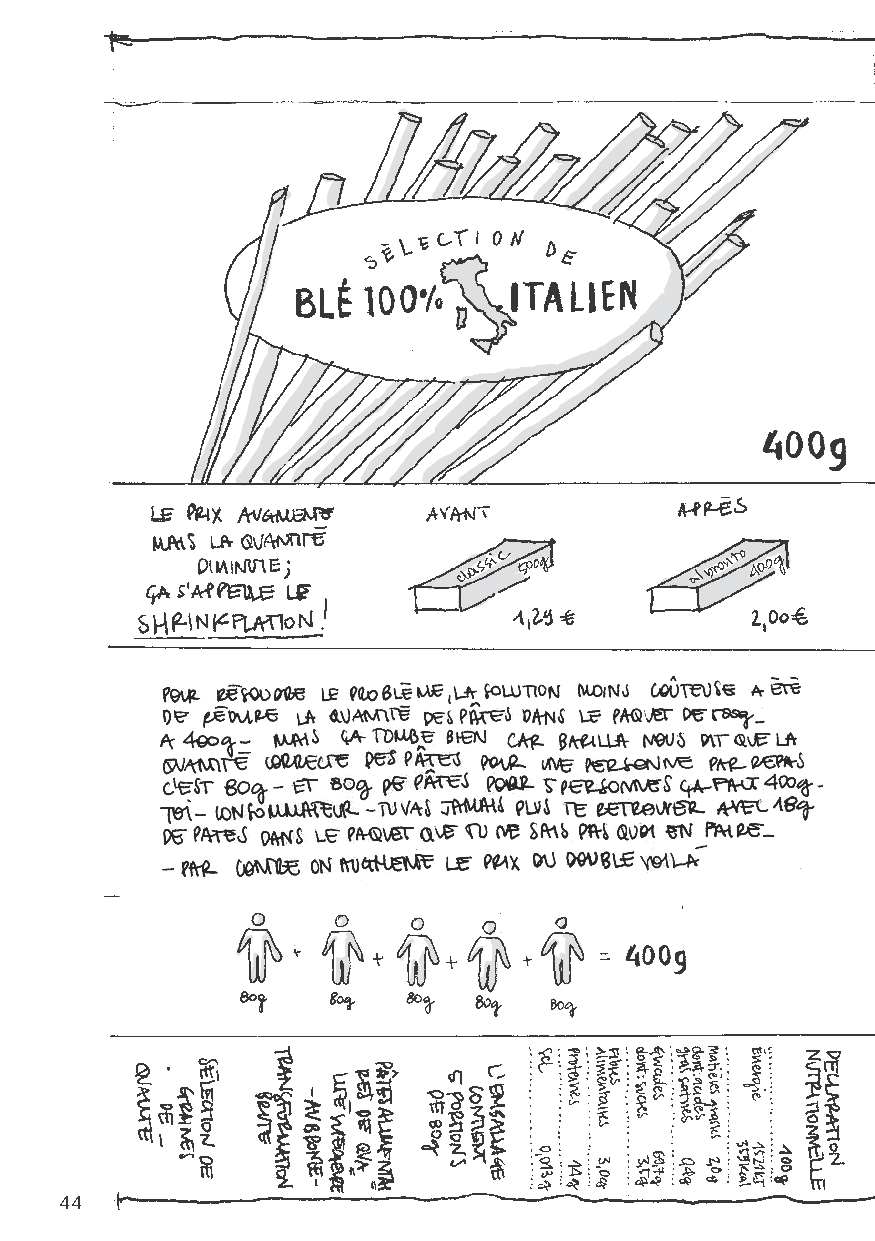 SÉLECTION DE
BLÉ 100% ITALIEN
400g
LE PRIX AUGMENTE
MAIS LA QUANTITÉ
DIMINUE;
ÇA S'APPELLE LE
SHRINKFLATION!
AVANT
classic 500g
1,29 €
APRÈS
al bronzo 400g
2,00 €
POUR RÉSOUDRE LE PROBLÈME, LA SOLUTION MOINS COÛTEUSE A ÉTÉ
DE RÉDUIRE LA QUANTITÉ DES PÂTES DANS LE PAQUET DE 500g_
A 400g - MAIS ÇA TOMBE BIEN CAR BARILLA NOUS DIT QUE LA
QUANTITÉ CORRECTE DES PÂTES POUR UNE PERSONNE PAR REPAS
C'EST 80g - ET 80g DE PÂTES POUR 5 PERSONNES ÇA FAIT 400g -
TOI - CONSOMMATEUR - TU VAS JAMAIS PLUS TE RETROUVER AVEC 18g
DE PATES DANS LE PAQUET QUE TU NE SAIS PAS QUOI EN FAIRE_
- PAR CONTRE ON AUGMENTE LE PRIX DU DOUBLE VOILÀ
+ + + + = 400g
80g 80g 80g 80g 80g
DECLARATION
NUTRITIONNELLE
100g
Energie 1521kJ
359kcal
Matières grasses 2,0g
dont acides
gras saturés 0,4g
Glucides 69,7g
dont: sucres 3,5g
Fibres
Alimentaires 3,0g
Protéines 14g
Sel 0,013g
L'EMBALLAGE
CONTIENT
5 PORTIONS
DE 80g
PÂTES ALIMENTAI
RES DE QUA
LITÉ SUPÉRIEURE
- AU BRONZE -
TRANSFORMATION
BRUTE
SÉLECTION DE
GRAINES
- DE -
QUALITÉ
44